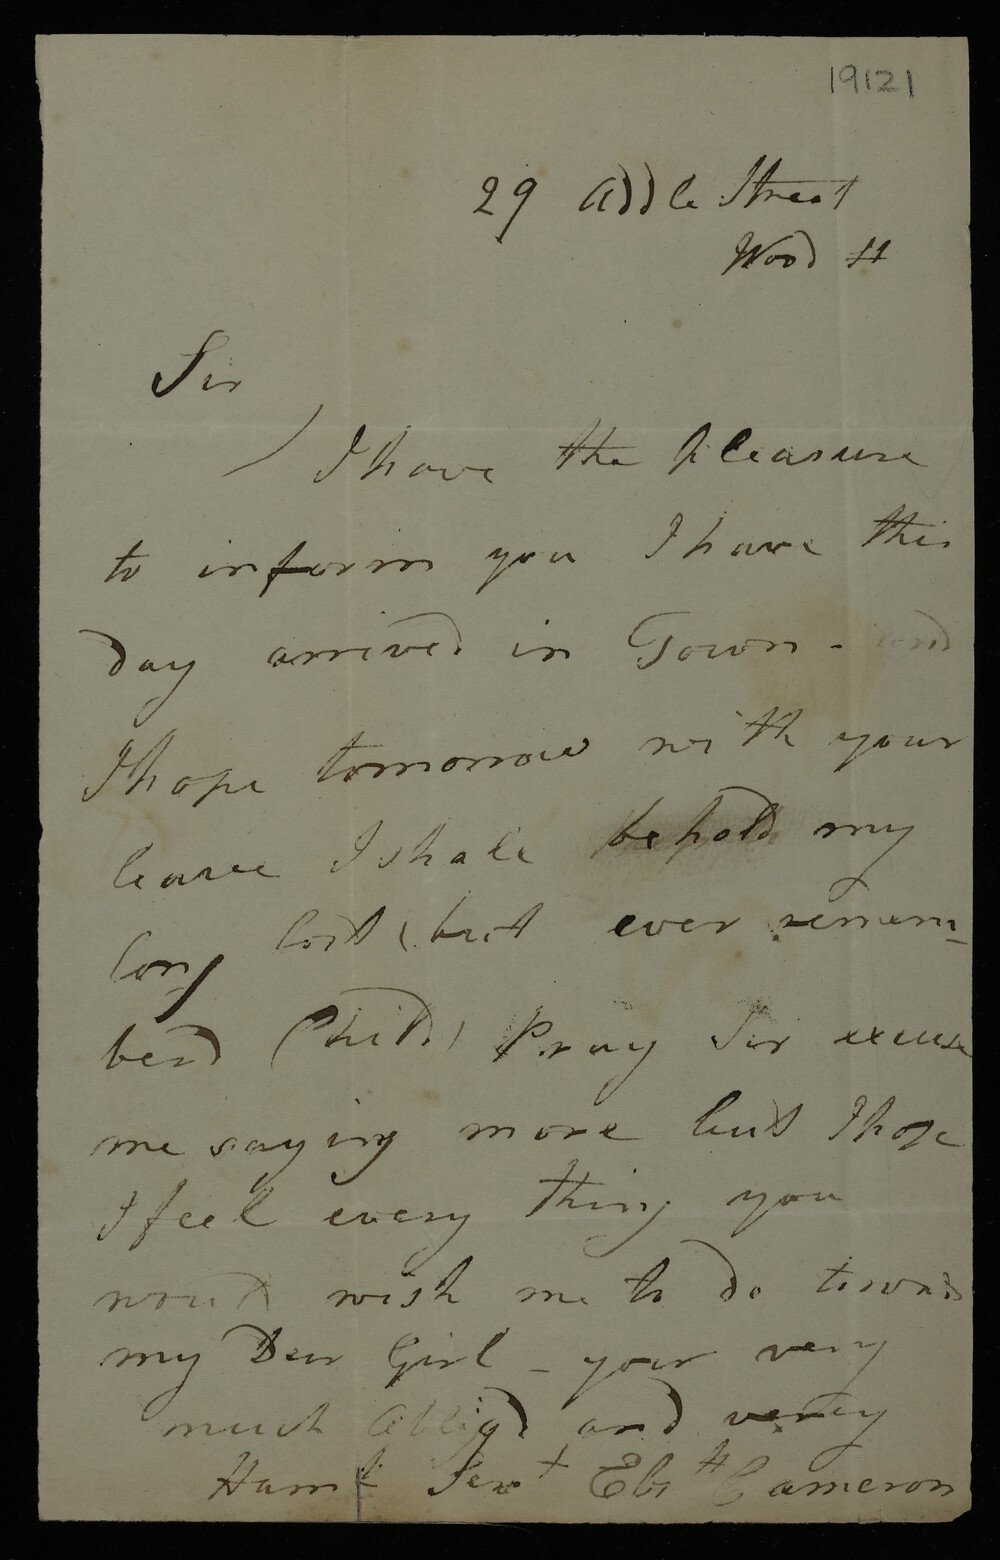 19121
29 Addle Street
Wood St
Sir
I have the pleasure
to inform you I have this
day arrived in Town - and
I hope tomorrow with your
leave I shale behold my
long lost (but ever remem-
berd Child) Pray Sir excuse
me saying more but I hope
I feel every thing you
woud wish me to do towards
my Dear Girl - your very
much Abligd and verey
Hum Sert Elizth Cameron